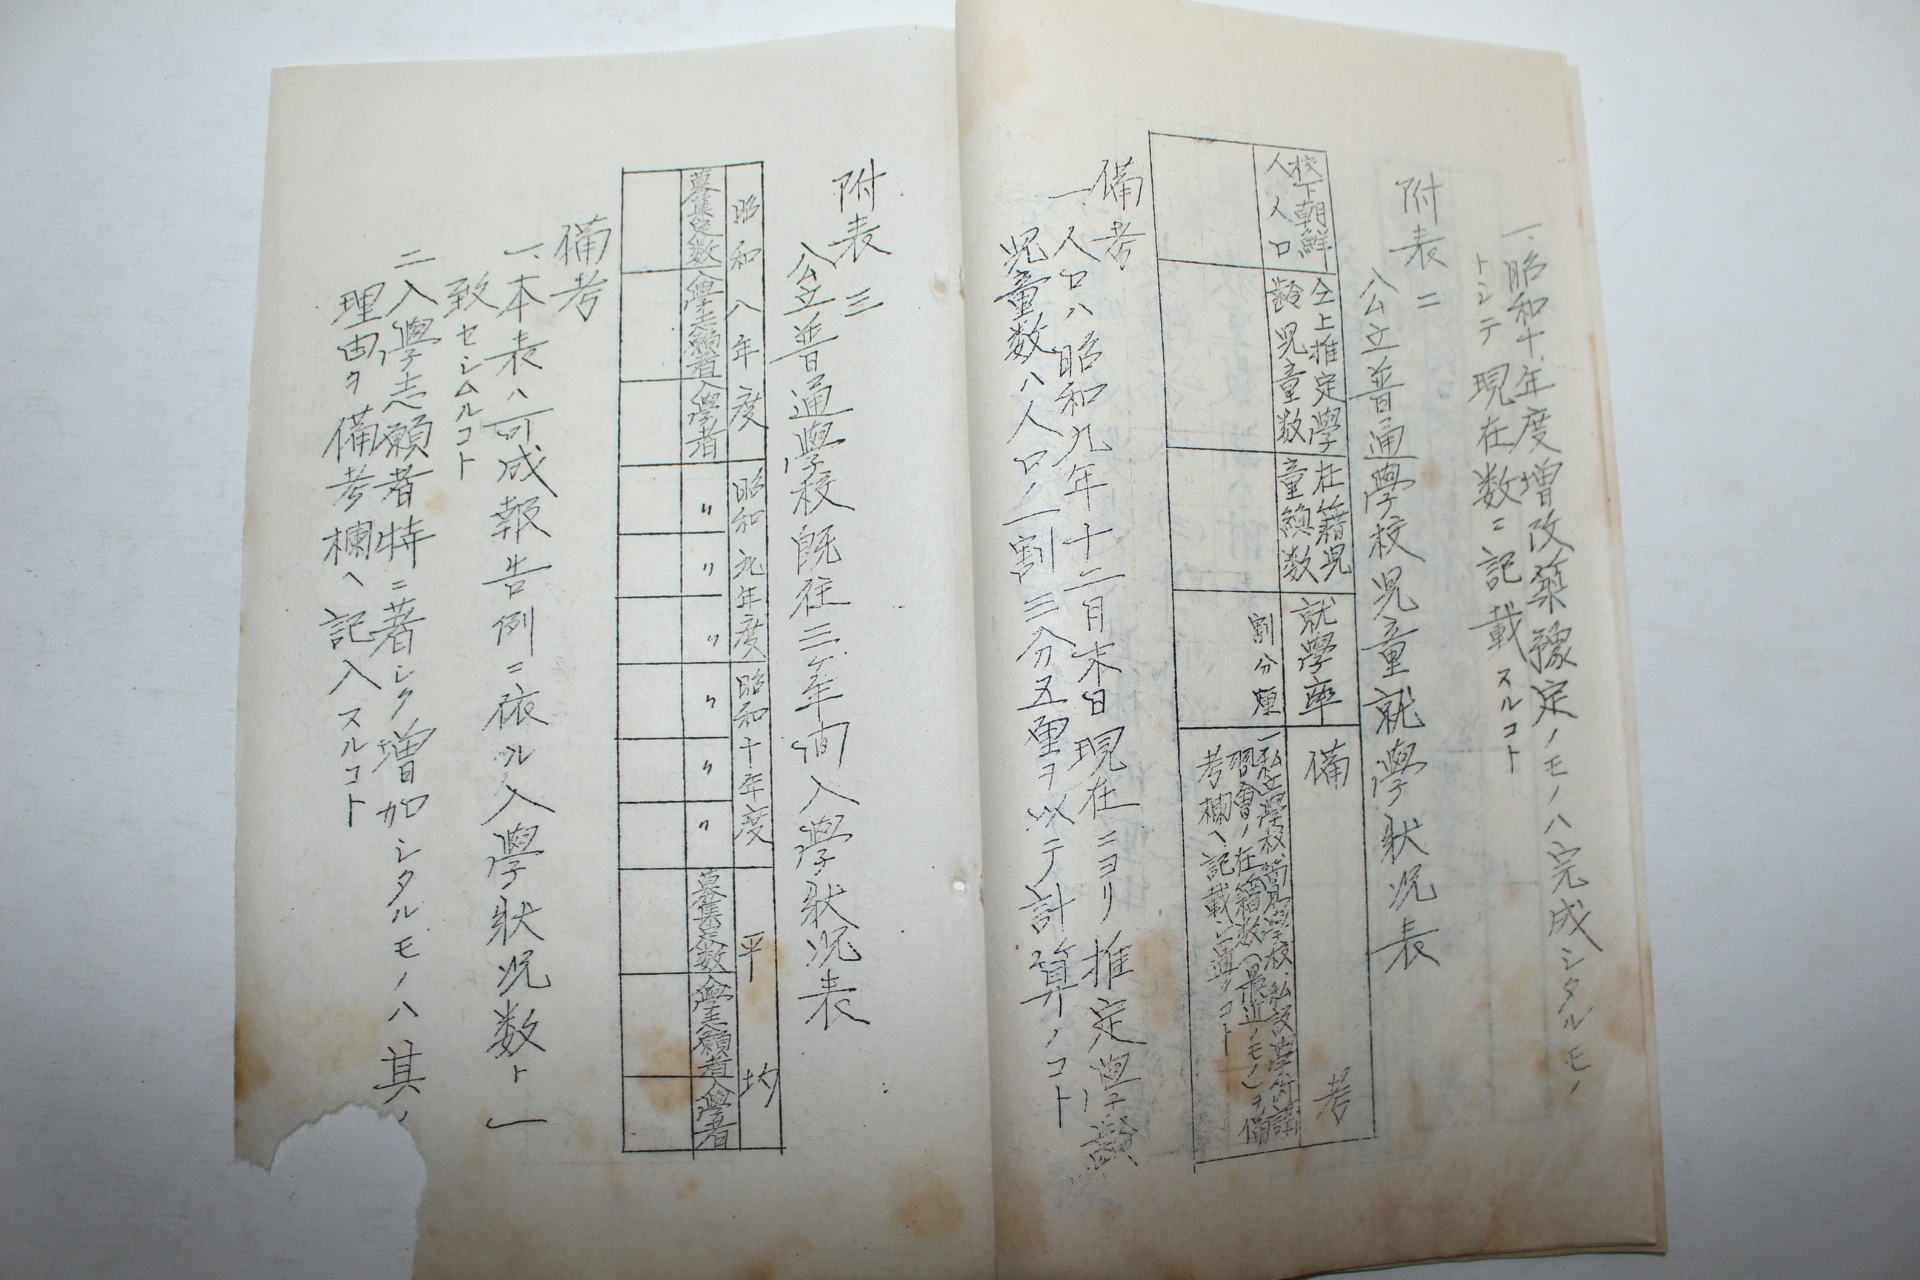 一、昭和十年度增改築豫定ノモノハ完成シタルモノ
トシテ現在数ニ記載スルコト
附表二
公立普通學校児童就學状況表
校下朝鮮
人人口
仝上推定學
齢児童数
在籍児
童総数
就學率
割分厘
備考
一私立學校、簡易學校、私設學術講
習會ノ在籍数(最近ノモノ)ヲ備
考欄ヘ記載シ置クコト
備考
一、人口ハ昭和九年十二月末日現在ニヨリ推定學齢
児童数ハ人口ノ一割三分五厘ヲ以テ計算ノコト
附表三
公立普通學校既往三ケ年間入學状況表
昭和八年度
昭和九年度
昭和十年度
平均
募集定数
入學志願者
入學者
〃
〃
〃
〃
〃
〃
募集定数
入學志願者
入學者
備考
一、本表ハ可成報告例ニ依ル入學状況数ト一
致セシムルコト
二入學志願者特ニ著シク増加シタルモノハ其ノ
理由ヲ備考欄ヘ記入スルコト